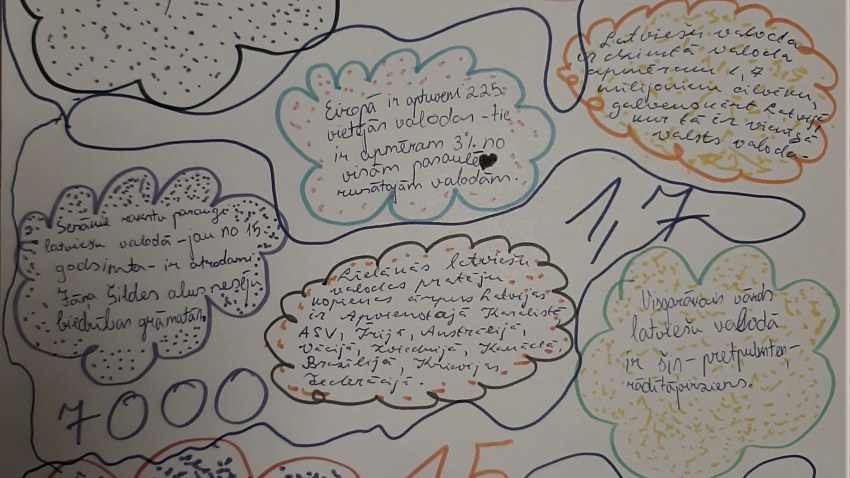 Eiropā ir aptuveni 225
vietējās valodas - tie
ir apmēram 3% no
visām pasaulē
runātajām valodām.
Latviešu valoda
ir dzimtā valoda
apmēram 1,7
miljoniem cilvēku,
galvenokārt Latvijā,
kur tā ir vienīgā
valsts valoda.
Senākie rakstu paraugi
latviešu valodā - jau no 15.
godsimta - ir atrodami
Jāņa Šildes alus nesēju
biedrības grāmatās.
1,7
Lielākās latviešu
valodas pratēju
kopienas ārpus Latvijas
ir Apvienotajā Karalistē
ASV, Īrijā, Austrālijā,
Vācijā, Zviedrijā, Kanādā,
Brazīlijā, Krievijas
Federācijā.
Visgarākais vārds
latviešu valodā
ir šis - pretpulksten-
rādītājvirziens.
7000
15